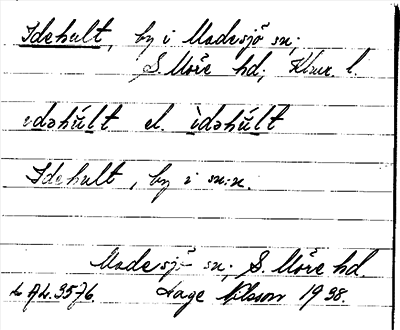 Idehult, by i Madesjö sn;
S. Möre hd; Klmr. l.
idəhúlt el. ìdəhúlt
Idehult, by i sn:n.
Madesjö sn; S. Möre hd.
LAL. 3576. Aage Olsson 1938.